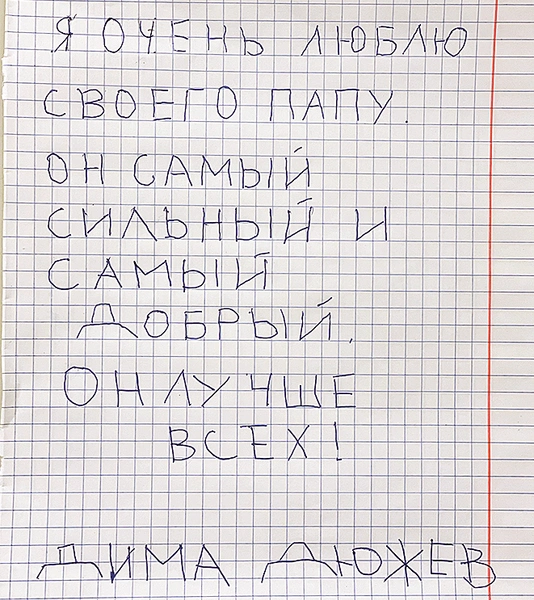 Я ОЧЕНЬ ЛЮБЛЮ
СВОЕГО ПАПУ.
ОН САМЫЙ
СИЛЬНЫЙ И
САМЫЙ
ДОБРЫЙ.
ОН ЛУЧШЕ
ВСЕХ!
ДИМА ДЮЖЕВ